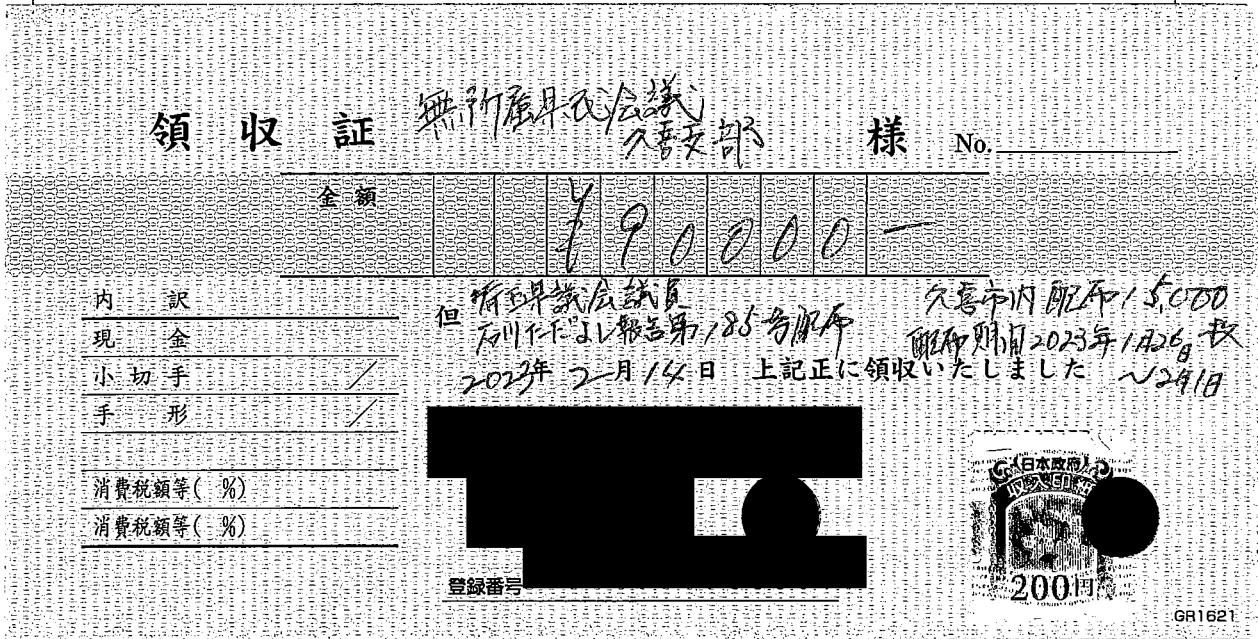 無所属県民会議
久喜支部
領収証 様 No.
金額 ¥90000ー
内訳
現金
小切手 /
手形 /
消費税額等( %)
消費税額等( %)
但 埼玉県議会議員
石川ただよし報告第185号配布
久喜市内配布15,000枚
配布期間2023年1月26日
~2月1日
2023年2月14日 上記正に領収いたしました
登録番号
日本政府
収入印紙
200円
GR1621